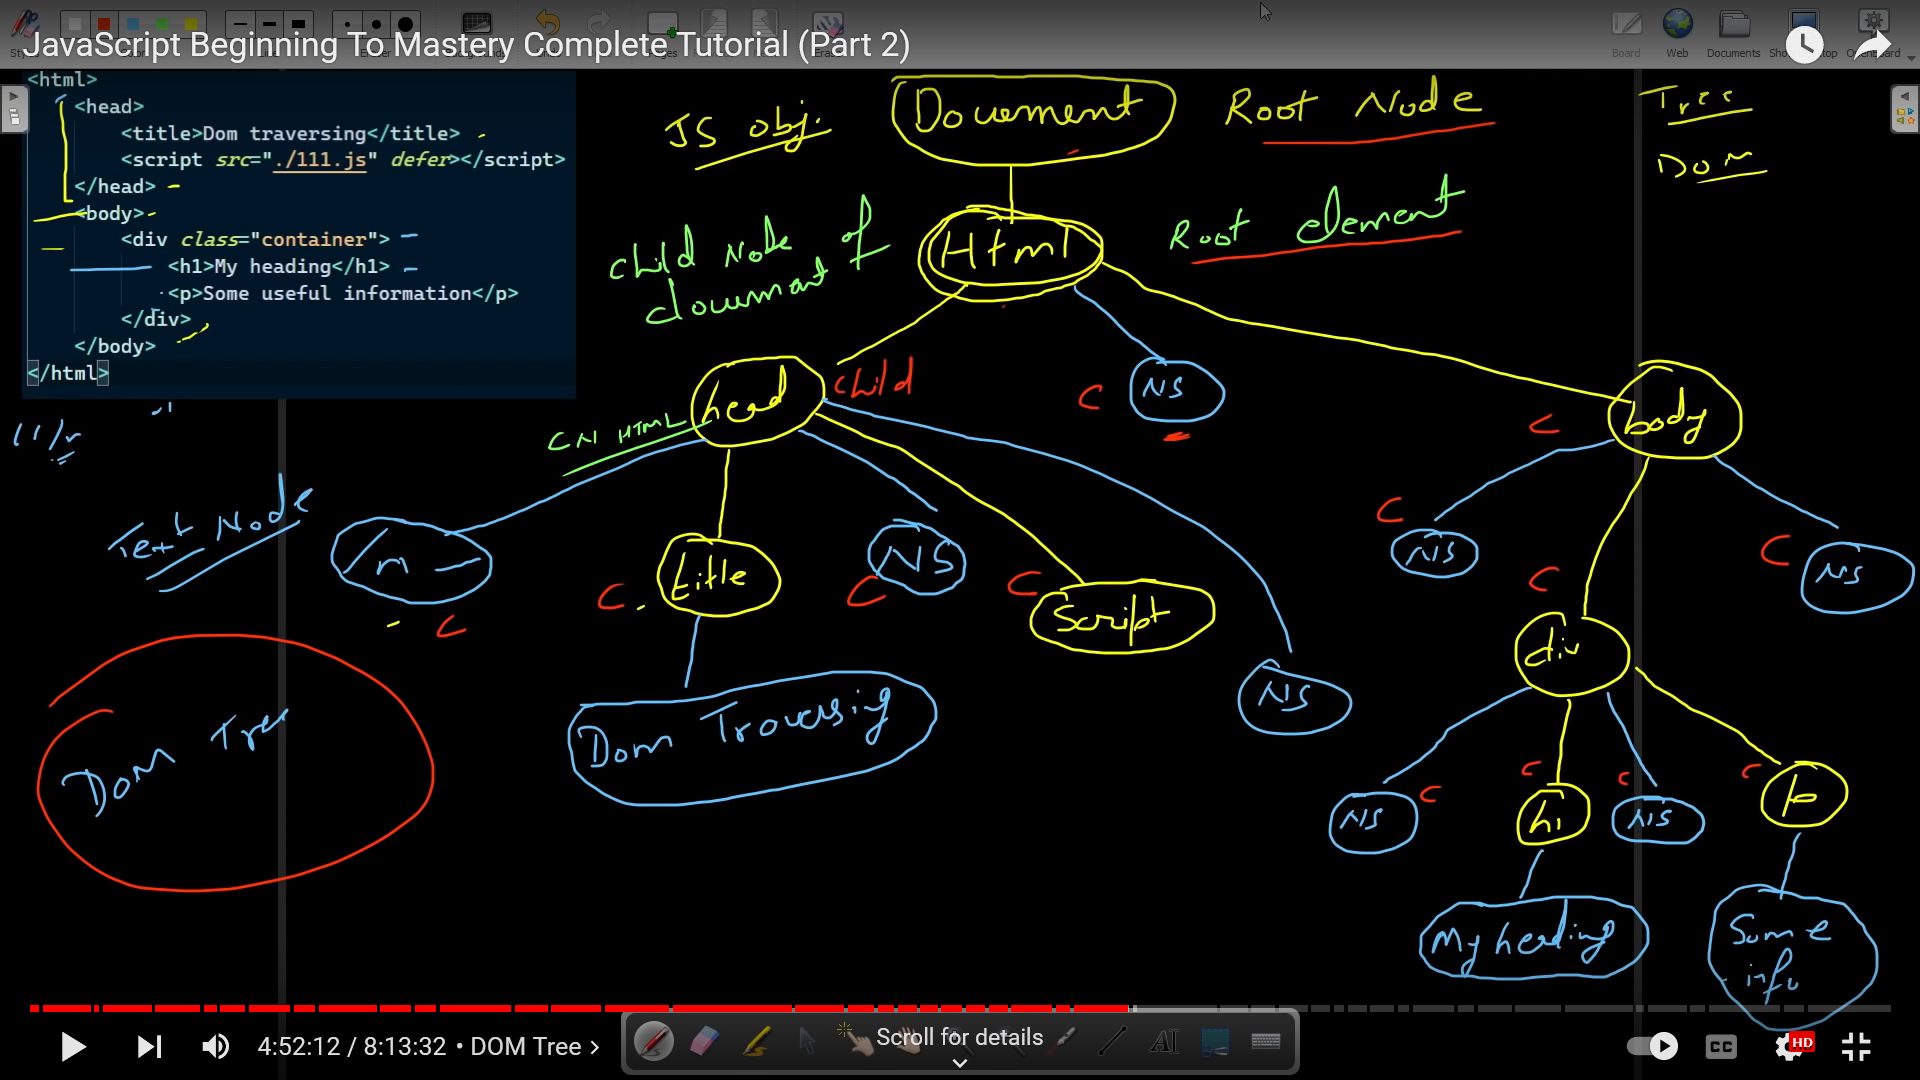 JavaScript Beginning To Mastery Complete Tutorial (Part 2)
Board
Web
Documents
<html>
<head>
<title>Dom traversing</title>
<script src="./111.js" defer></script>
</head>
<body>
<div class="container">
<h1>My heading</h1>
<p>Some useful information</p>
</div>
</body>
</html>
JS obj.
Document
Root Node
Tree
Dom
child Node of
document
Html
Root element
head
child
C
NS
C
body
CN HTML
Text Node
/n
C
C
title
C
NS
C
script
NS
C
NS
C
NS
C
div
Dom Tree
Dom Traversing
NS
C
C
h1
C
NS
C
p
My heading
Some
info
4:52:12 / 8:13:32 • DOM Tree >
Scroll for details
CC
HD